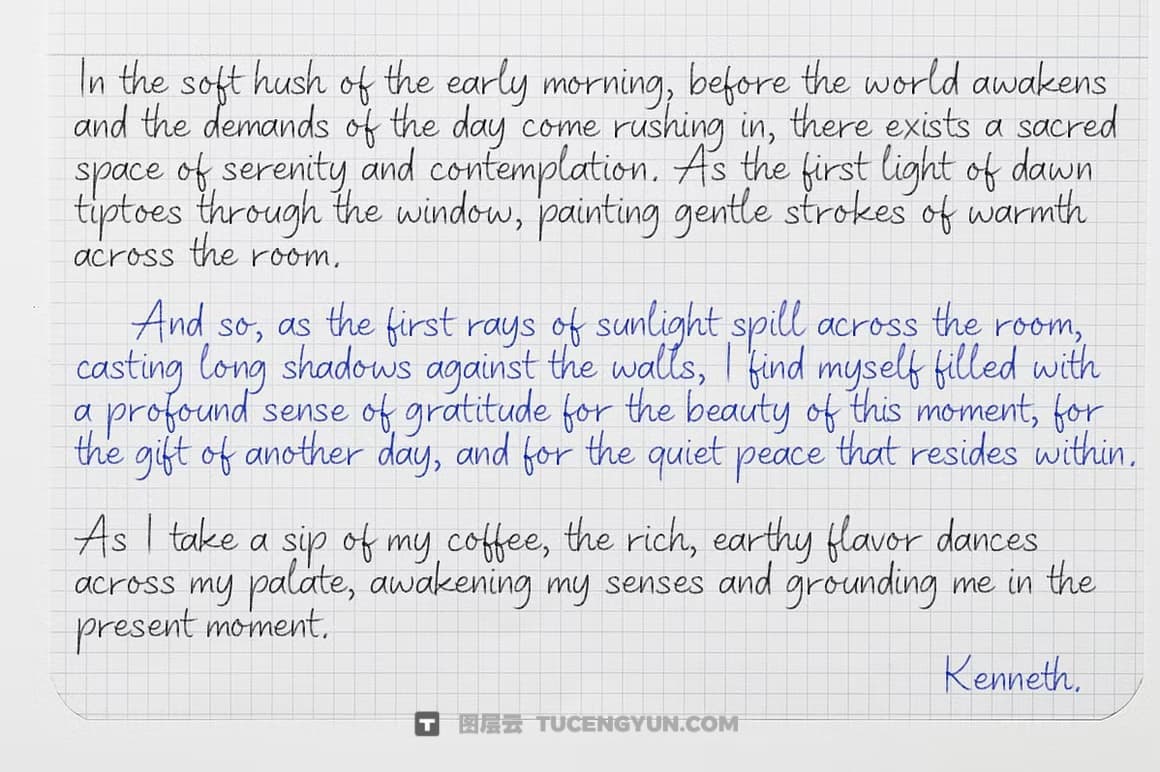 In the soft hush of the early morning, before the world awakens
and the demands of the day come rushing in, there exists a sacred
space of serenity and contemplation. As the first light of dawn
tiptoes through the window, painting gentle strokes of warmth
across the room.
And so, as the first rays of sunlight spill across the room,
casting long shadows against the walls, I find myself filled with
a profound sense of gratitude for the beauty of this moment, for
the gift of another day, and for the quiet peace that resides within.
As I take a sip of my coffee, the rich, earthy flavor dances
across my palate, awakening my senses and grounding me in the
present moment.
Kenneth.
T 图层云 TUCENGYUN.COM